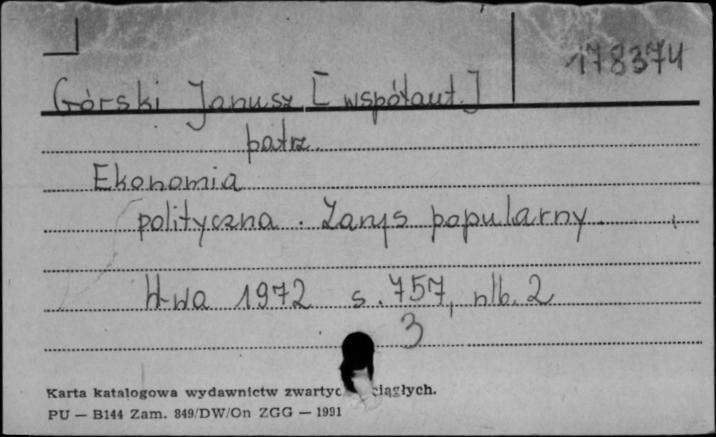 178374
Górski Janusz [współaut.]
patrz.
Ekonomia
polityczna. Zarys popularny.
W-wa 1972 s. 757, nlb. 2
3
Karta katalogowa wydawnictw ciągłych.
PU — B144 Zam. 849/DW/On ZGG — 1991